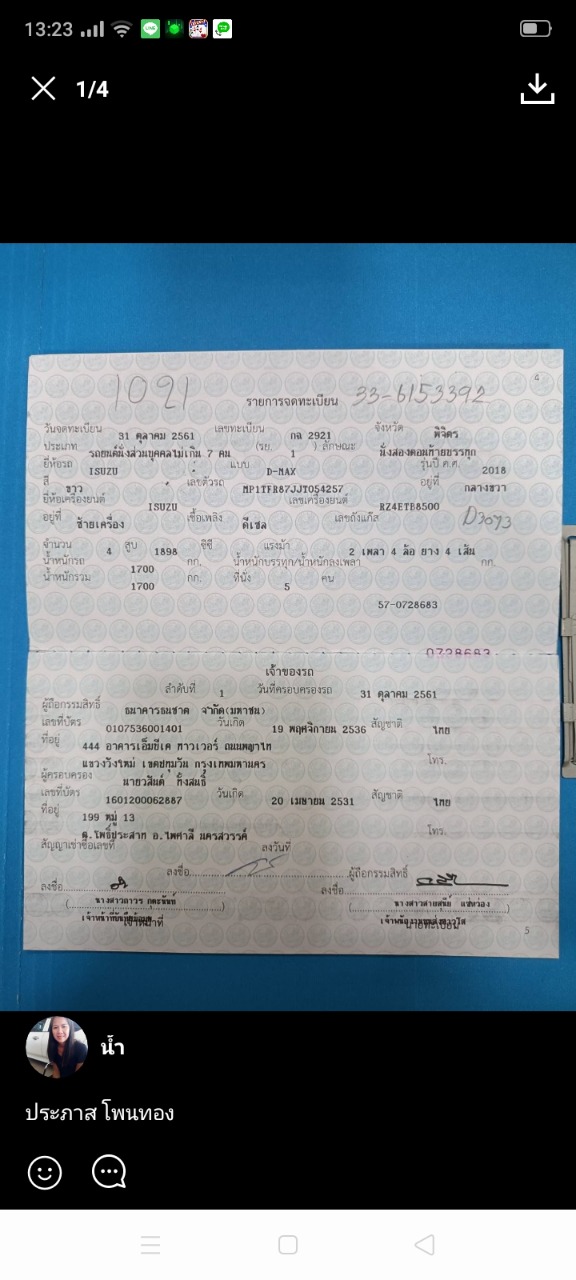 13:23
1/4
1091 รายการจดทะเบียน 33-6153392
วันจดทะเบียน 31 ตุลาคม 2561 เลขทะเบียน กฉ 2921 จังหวัด พิจิตร
ประเภท รถยนต์นั่งส่วนบุคคลไม่เกิน 7 คน (รย. 1 ) ลักษณะ นั่งสองตอนท้ายบรรทุก
ยี่ห้อรถ ISUZU แบบ D-MAX รุ่นปี ค.ศ. 2018
สี ขาว เลขตัวรถ MP1TFR87JJT054257 อยู่ที่ กลางขวา
ยี่ห้อเครื่องยนต์ ISUZU เลขเครื่องยนต์ RZ4ETB8500
อยู่ที่ ซ้ายเครื่อง เชื้อเพลิง ดีเซล เลขถังแก๊ส D3093
จำนวน 4 สูบ 1898 ซีซี แรงม้า 2 เพลา 4 ล้อ ยาง 4 เส้น
น้ำหนักรถ 1700 กก. น้ำหนักบรรทุก/น้ำหนักลงเพลา กก.
น้ำหนักรวม 1700 กก. ที่นั่ง 5 คน
57-0728683
0728683
เจ้าของรถ
ลำดับที่ 1 วันที่ครอบครองรถ 31 ตุลาคม 2561
ผู้ถือกรรมสิทธิ์ ธนาคารธนชาต จำกัด(มหาชน)
เลขที่บัตร 0107536001401 วันเกิด 19 พฤศจิกายน 2536 สัญชาติ ไทย
ที่อยู่ 444 อาคารเอ็มบีเค ทาวเวอร์ ถนนพญาไท
แขวงวังใหม่ เขตปทุมวัน กรุงเทพมหานคร โทร.
ผู้ครอบครอง นายวสันต์ ทั่งสนธิ์
เลขที่บัตร 1601200062887 วันเกิด 20 เมษายน 2531 สัญชาติ ไทย
ที่อยู่ 199 หมู่ 13
ต.โพธิ์ประสาท อ.ไพศาลี นครสวรรค์ โทร.
สัญญาเช่าซื้อเลขที่ ลงวันที่
ลงชื่อ ผู้ถือกรรมสิทธิ์
ลงชื่อ ลงชื่อ
เจ้าหน้าที่ นายทะเบียน
5
น้ำ
ประภาส โพนทอง